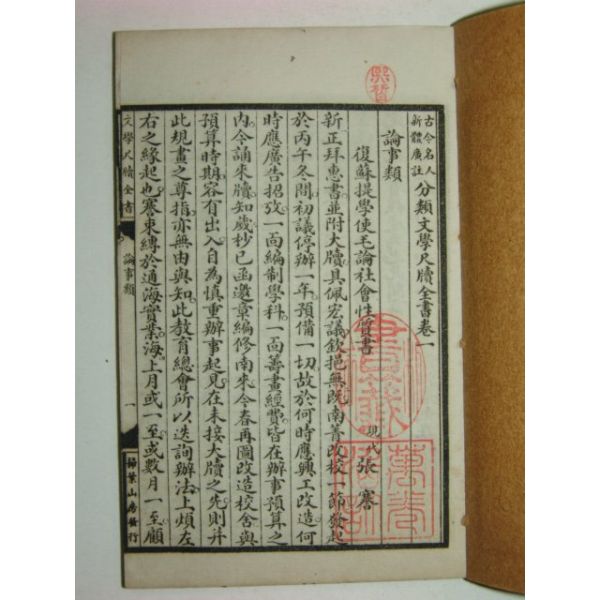 古今名人
新體廣註
分類文學尺牘全書卷一
論事類
復蘇提學使毛論社會性質書
現代 張謇
新正拜惠書並附大牘具佩宏議欽挹無既南菁改校一節發起
於丙午冬間初議停辦一年預備一切故於何時應興工改造何
時應廣告招攷一面編制學科一面籌畫經費皆在辦事預算之
內今誦來牘知歲杪已函邀章編修南來今春再圖改造校舍與
預算時期容有出入自為慎重辦事起見在未接大牘之先則并
此規畫之尊指亦無由與知此教育總會所以迭詢辦法上煩左
右之緣起也謇東縛於通海實業海上月或一至或數月一至顧
文學尺牘全書
論事類
一
掃葉山房發行